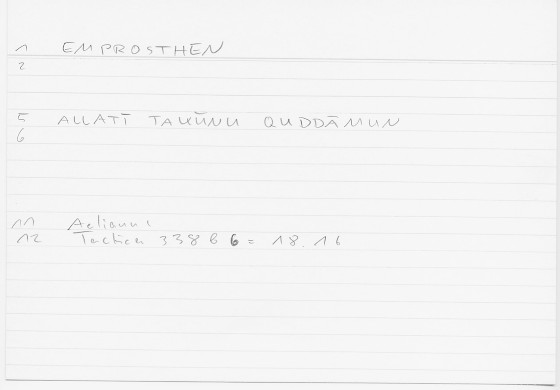 1 EMPROSTHEN
2
5 ALLATĪ TAKŪNU QUDDĀMUN
6
11 Aelianus
12 Tactica 338 b 6 = 18.16